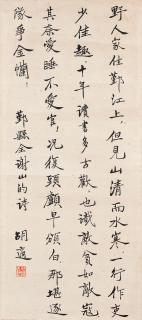 野人家住鄞江上,但見山清而水寒.一行作吏
少佳趣,十年讀書多古歡.也識敵貧如敵寇
其奈愛睡不愛官!況復頭顱早頒白,那堪逐
隊爭金!鄞縣全謝山的詩 胡適